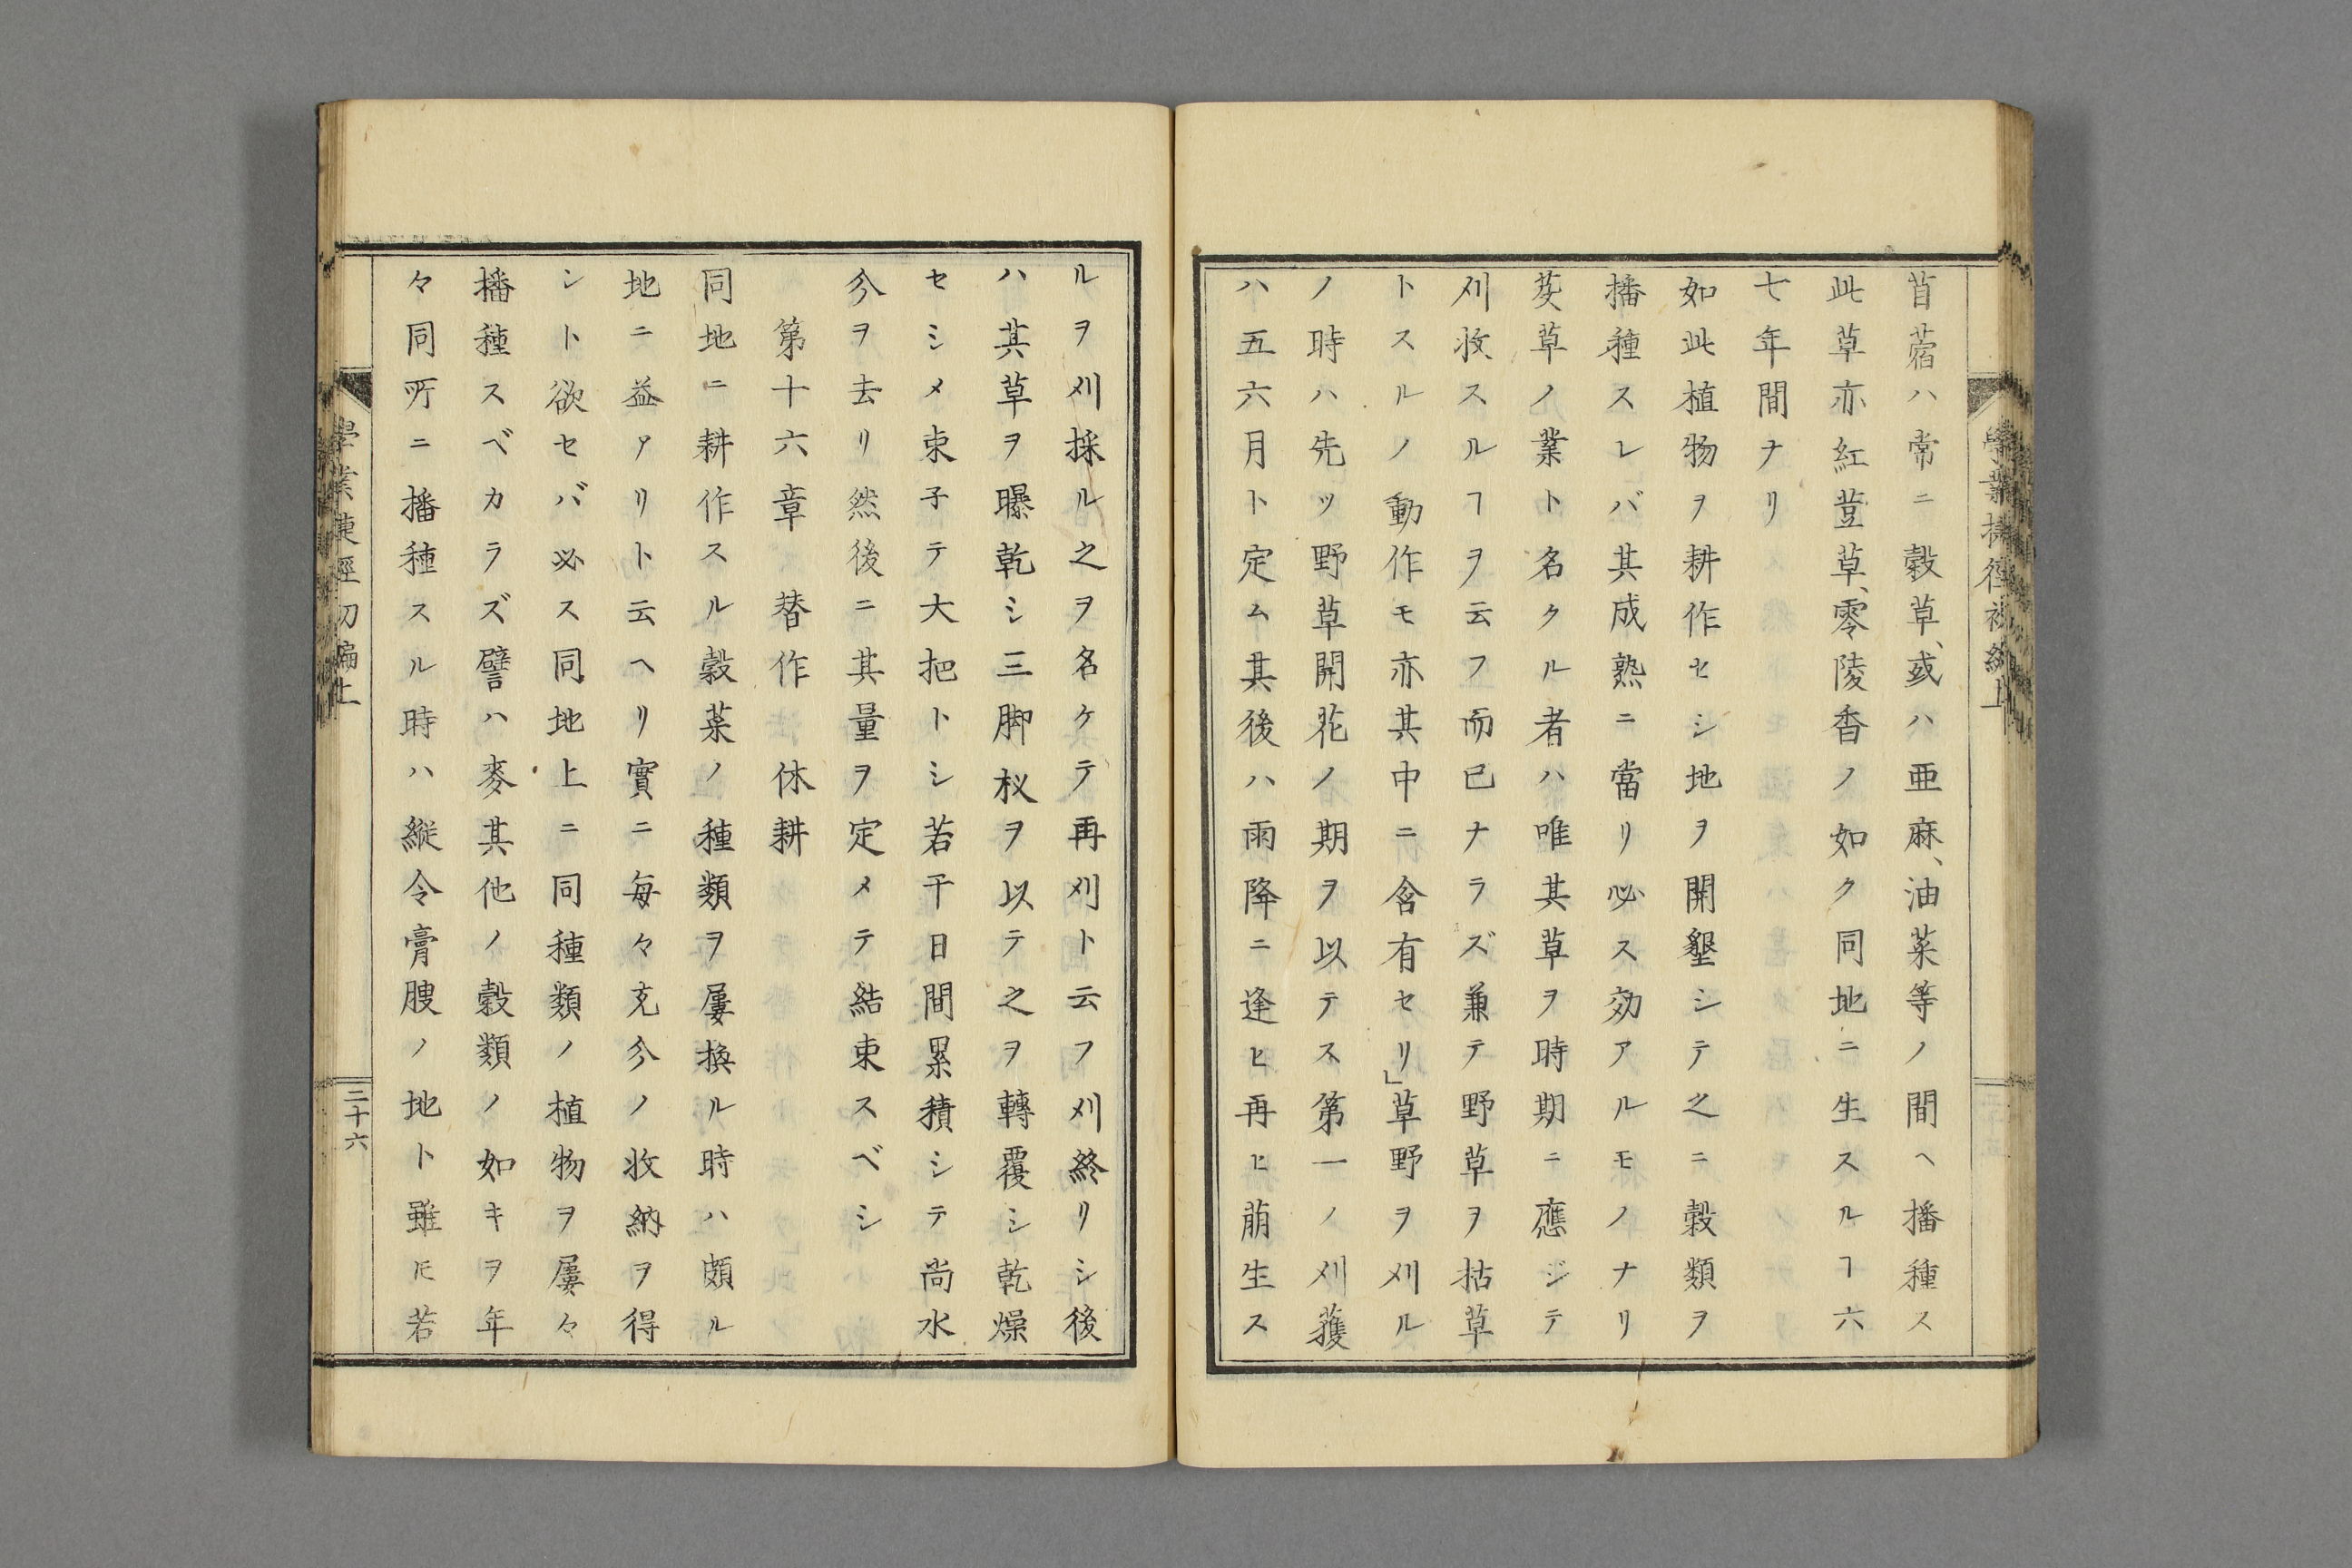 苜蓿ハ常ニ穀草、或ハ亜麻、油菜等ノ間ヘ播種ス
此草亦紅荳草、零陵香ノ如ク同地ニ生スルヿ六
七年間ナリ
如此植物ヲ耕作セシ地ヲ開墾シテ之ニ穀類ヲ
播種スレバ其成熟ニ當リ必ス効アルモノナリ
芟草ノ業ト名クル者ハ唯其草ヲ時期ニ應ジテ
刈收スルヿヲ云フ而已ナラズ兼テ野草ヲ枯草
トスルノ動作モ亦其中ニ含有セリ」草野ヲ刈ル
ノ時ハ先ツ野草開花ノ期ヲ以テス第一ノ刈穫
ハ五六月ト定ム其後ハ雨降ニ逢ヒ再ヒ萠生ス
ルヲ刈採ル之ヲ名ケテ再刈ト云フ刈終リシ後
ハ其草ヲ曝乾シ三脚杈ヲ以テ之ヲ轉覆シ乾燥
セシメ束子テ大把トシ若干日間累積シテ尚水
分ヲ去リ然後ニ其量ヲ定メテ結束スベシ
第十六章 替作 休耕
同地ニ耕作スル穀菜ノ種類ヲ屢換ル時ハ頗ル
地ニ益アリト云ヘリ實ニ毎々充分ノ收納ヲ得
ント欲セバ必ス同地上ニ同種類ノ植物ヲ屢々
播種スベカラズ譬ハ麥其他ノ穀類ノ如キヲ年
々同所ニ播種スル時ハ縱令膏腴ノ地ト雖𪜈若
學業捷徑初編上
三十六